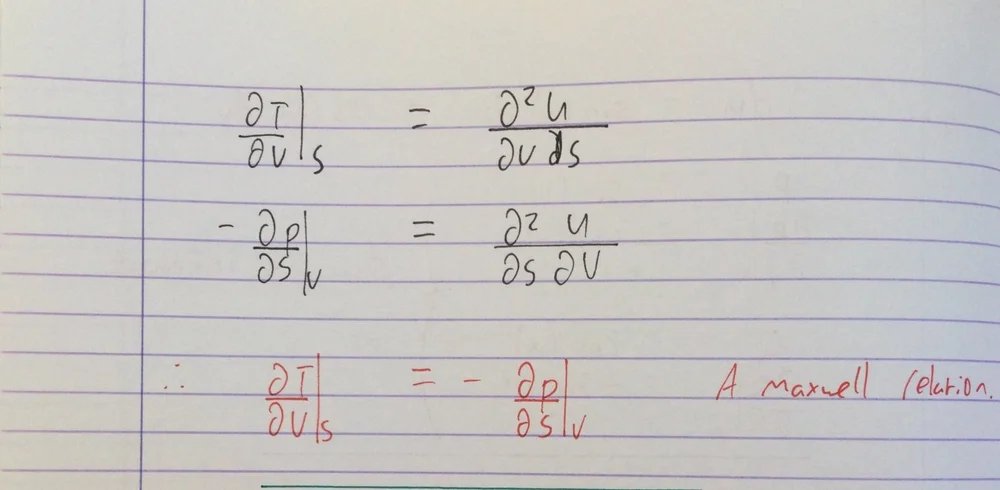 ∂T/∂V|S = ∂²U/∂V∂S
-∂p/∂S|V = ∂²U/∂S∂V
∴ ∂T/∂V|S = -∂p/∂S|V A maxwell relation.